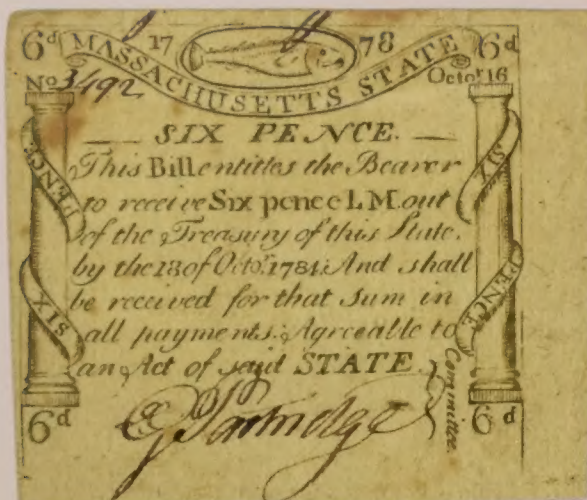 6d 17 78 6d
MASSACHUSETTS STATE
No 3492 Octor 16
SIX PENCE.
This Bill entitles the Bearer
to receive Six pence L M. out
of the Treasury of this State.
by the 18 of Octor. 1784. And shall
be received for that Sum in
all payments. Agreeable to
an Act of said STATE.
PENCE
SIX
SIX
PENCE
6d E Partridge Committee. 6d